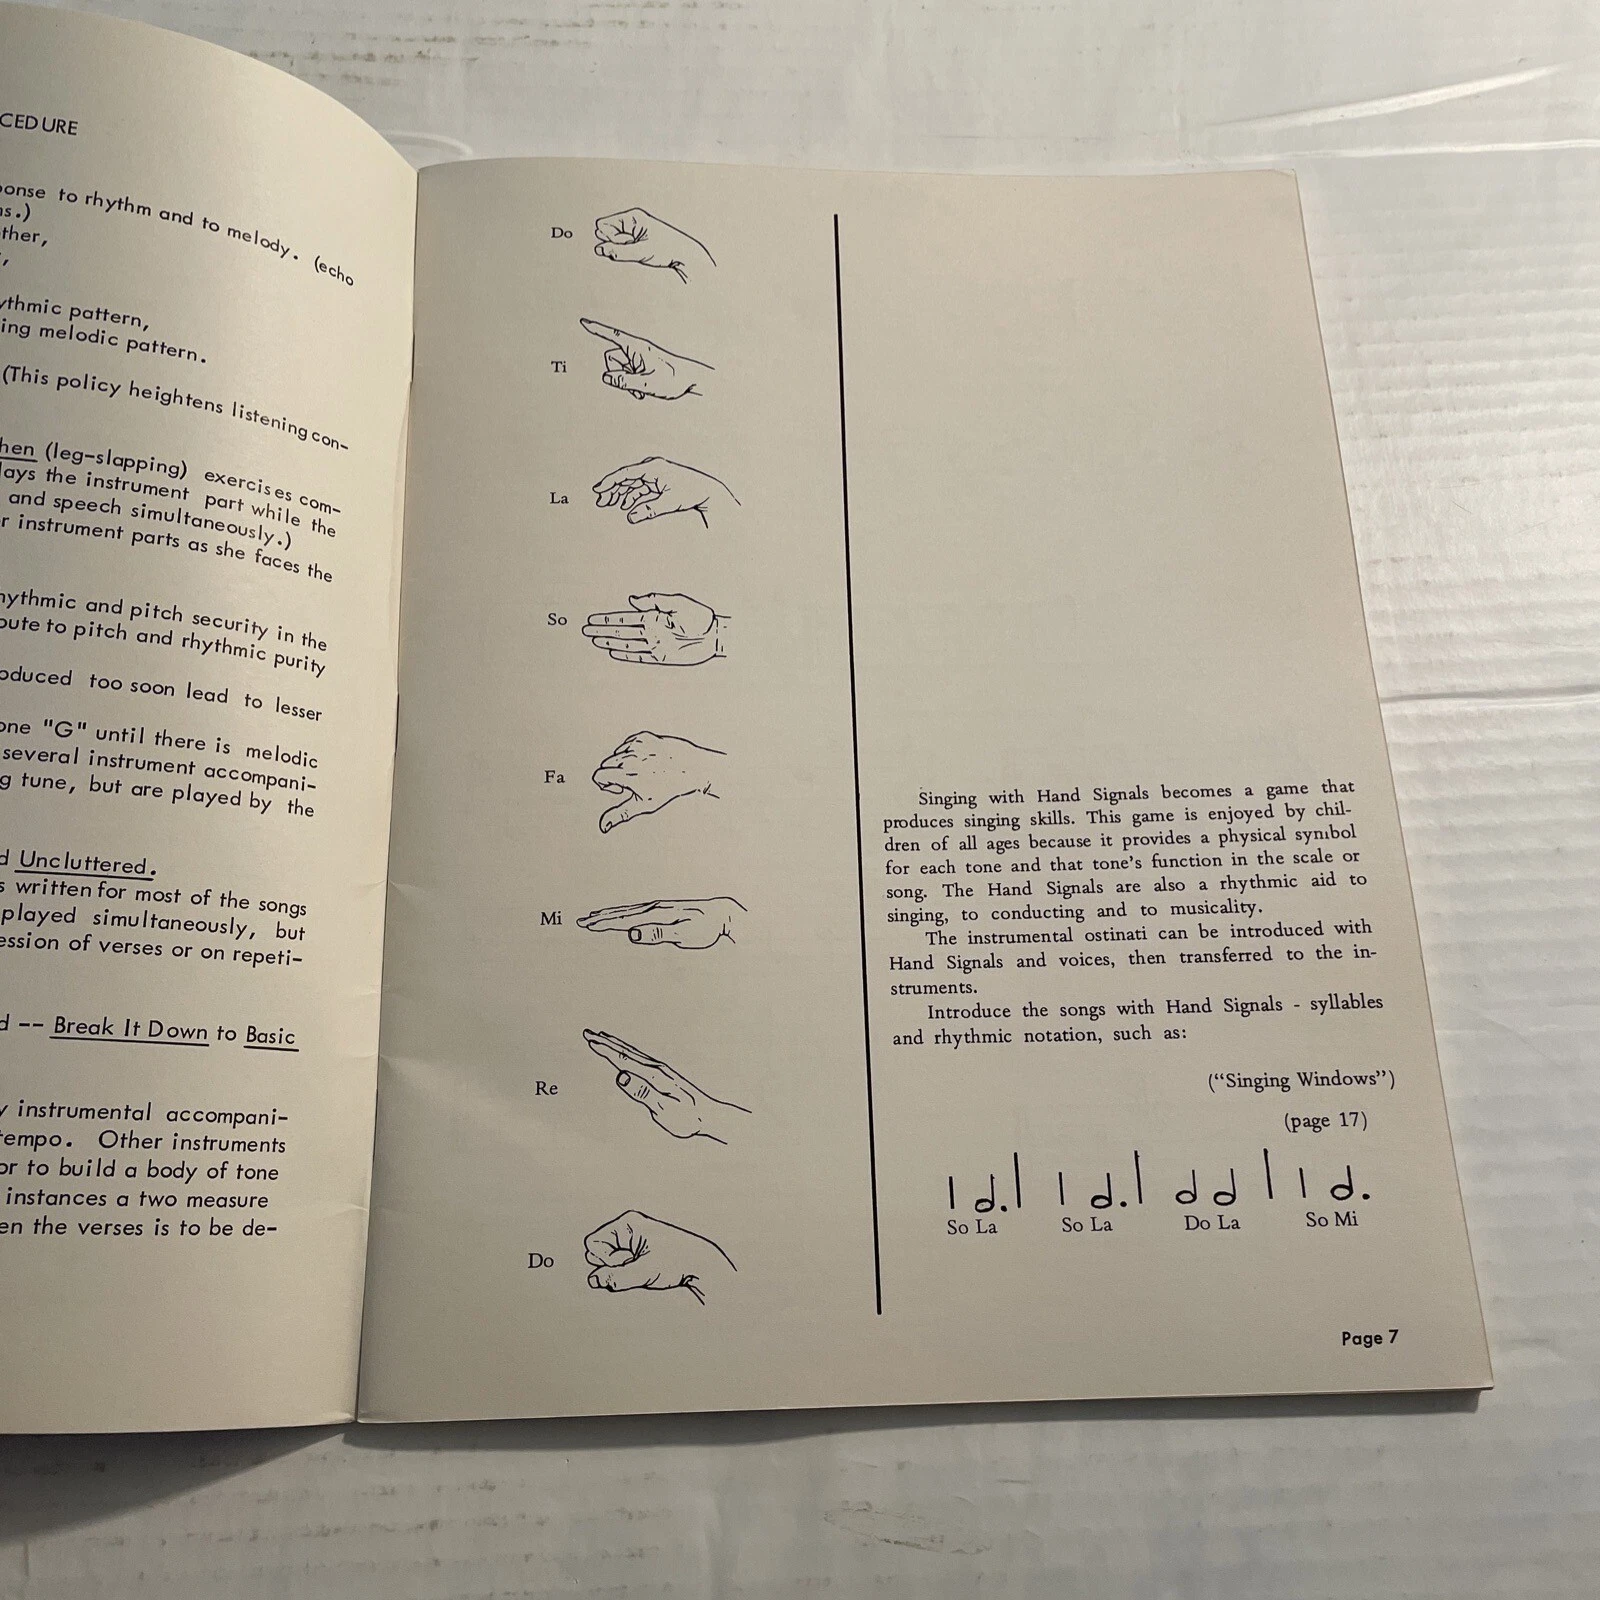 CEDURE
ponse to rhythm and to melody. (echo
ns.)
ther,
ythmic pattern,
ing melodic pattern.
(This policy heightens listening con-
hen (leg-slapping) exercises com-
lays the instrument part while the
and speech simultaneously.)
r instrument parts as she faces the
hythmic and pitch security in the
bute to pitch and rhythmic purity
oduced too soon lead to lesser
one "G" until there is melodic
several instrument accompani-
g tune, but are played by the
d Uncluttered.
s written for most of the songs
played simultaneously, but
ession of verses or on repeti-
d -- Break It Down to Basic
y instrumental accompani-
tempo. Other instruments
or to build a body of tone
instances a two measure
en the verses is to be de-
Do
Ti
La
So
Fa
Mi
Re
Do
Singing with Hand Signals becomes a game that
produces singing skills. This game is enjoyed by chil-
dren of all ages because it provides a physical symbol
for each tone and that tone's function in the scale or
song. The Hand Signals are also a rhythmic aid to
singing, to conducting and to musicality.
The instrumental ostinati can be introduced with
Hand Signals and voices, then transferred to the in-
struments.
Introduce the songs with Hand Signals - syllables
and rhythmic notation, such as:
("Singing Windows")
(page 17)
So La So La Do La So Mi
Page 7